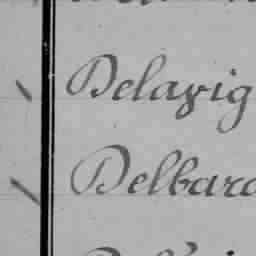 Delavig
Delbard